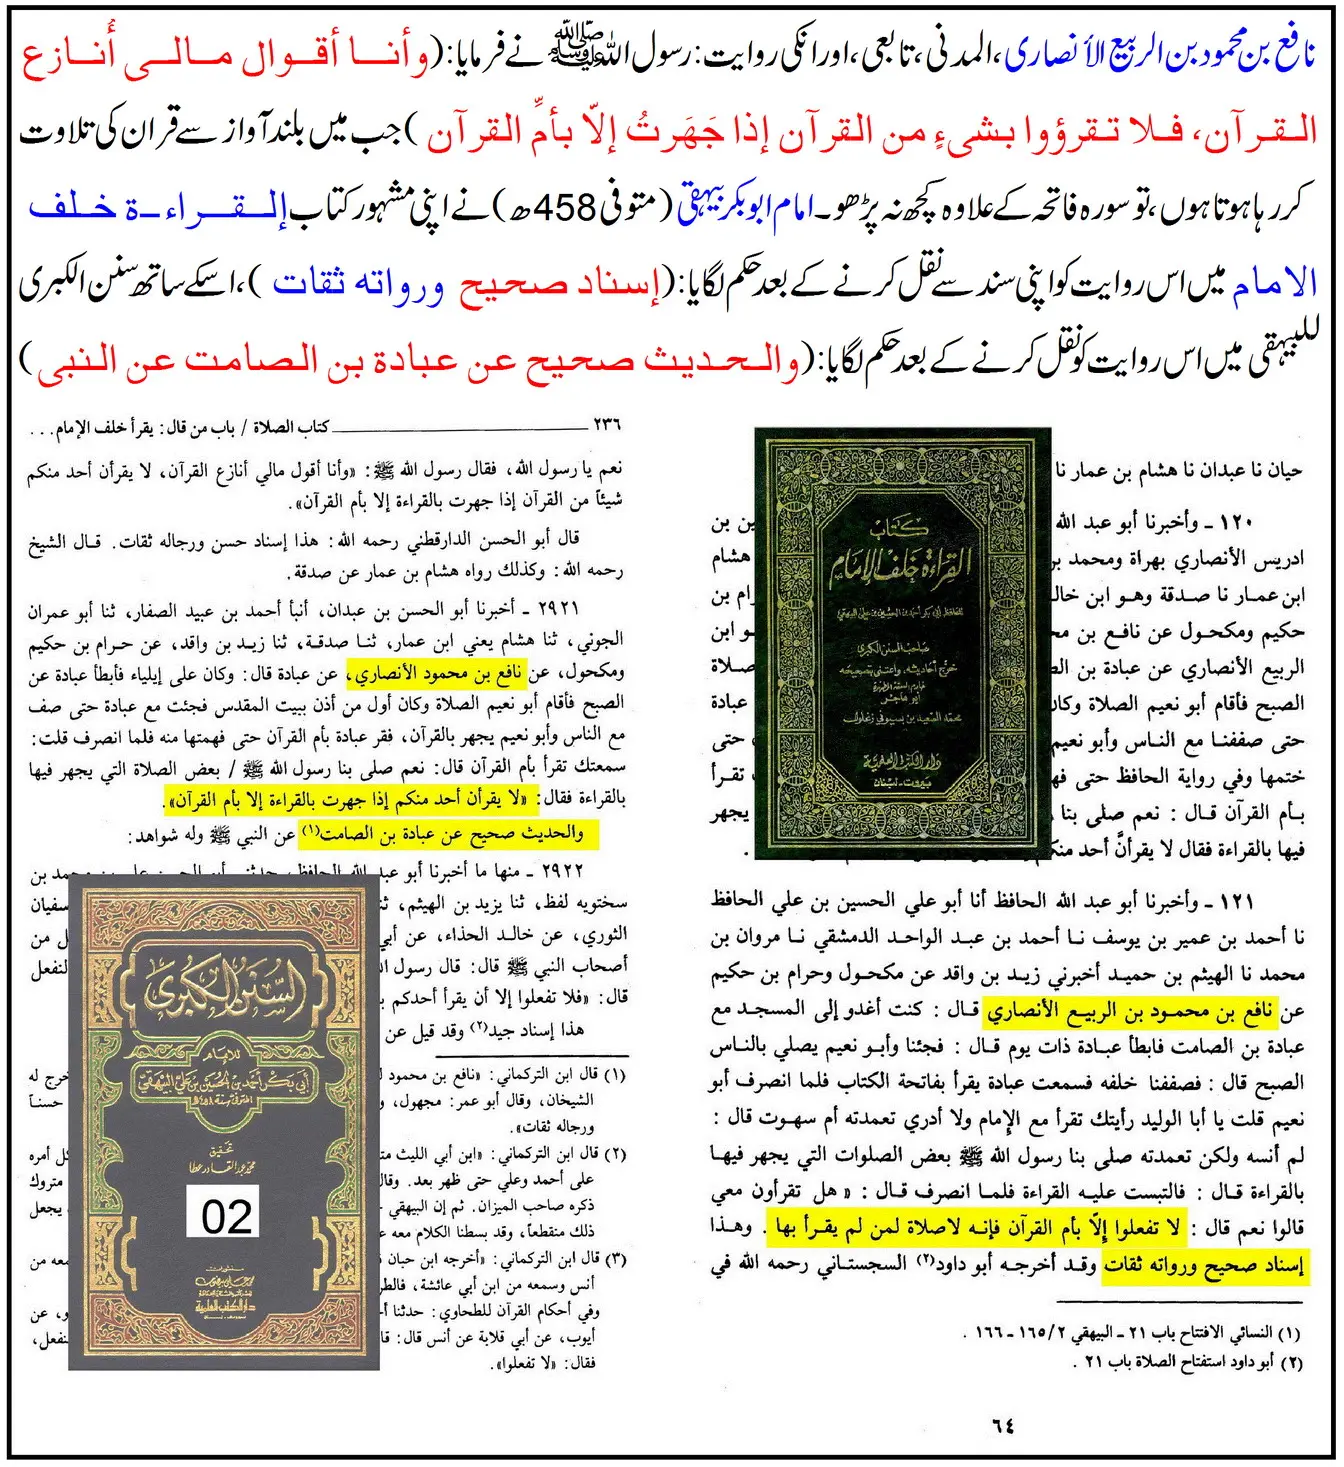 نافع بن محمود بن الربیع الأنصاری ،المدنی، تابعی،اورانکی روایت: رسول اللہ ﷺ نے فرمایا:(وأنـا أقـوال مـالـى أُنـازع
الـقـرآن، فـلا تـقرؤوا بـشىءٍ مـن القرآن إذا جَهَرتُ إلاّ بـأمِّ القرآن )جب میں بلند آواز سے قران کی تلاوت
کررہا ہوتا ہوں،تو سورہ فاتحہ کے علاوہ کچھ نہ پڑھو۔امام ابوبکر بیہقی (متوفی 458ھ) نے اپنی مشہور کتاب إلـقـراءـة خـلف
الامام میں اس روایت کو اپنی سند سے نقل کرنے کے بعد حکم لگایا:(إسناد صحيح ورواته ثقات )،اسکے ساتھ سنن الکبری
للبیهقی میں اس روایت کو نقل کرنے کے بعد حکم لگایا:(والـحـديث صحيح عن عبادة بن الصامت عن النبى)
٢٣٦ كتاب الصلاة / باب من قال: يقرأ خلف الإمام . . .
نعم يا رسول الله، فقال رسول الله ﷺ: «وأنا أقول مالي أنازع القرآن، لا يقرأن أحد منكم
شيئاً من القرآن إذا جهرت بالقراءة إلا بأم القرآن».
قال أبو الحسن الدارقطني رحمه الله: هذا إسناد حسن ورجاله ثقات. قال الشيخ
رحمه الله: وكذلك رواه هشام بن عمار عن صدقة.
٢٩٢١ ـ أخبرنا أبو الحسن بن عبدان، أنبأ أحمد بن عبيد الصفار، ثنا أبو عمران
الجوني، ثنا هشام يعني ابن عمار، ثنا صدقة، ثنا زيد بن واقد، عن حرام بن حكيم
ومكحول، عن نافع بن محمود الأنصاري، عن عبادة قال: وكان على إيلياء فأبطأ عبادة عن
الصبح فأقام أبو نعيم الصلاة وكان أول من أذن ببيت المقدس فجئت مع عبادة حتى صف
مع الناس وأبو نعيم يجهر بالقرآن، فقر عبادة بأم القرآن حتى فهمتها منه فلما انصرف قلت:
سمعتك تقرأ بأم القرآن قال: نعم صلى بنا رسول الله ﷺ / بعض الصلاة التي يجهر فيها
بالقراءة فقال: «لا يقرأن أحد منكم إذا جهرت بالقراءة إلا بأم القرآن».
والحديث صحيح عن عبادة بن الصامت(١) عن النبي ﷺ وله شواهد:
٢٩٢٢ ـ منها ما أخبرنا أبو عبد الله الحافظ، حدثني أبو الحسن علي بن محمد بن
سختويه لفظ، ثنا يزيد بن الهيثم، ثنا سفيان
الثوري، عن خالد الحذاء، عن أبي ل من
أصحاب النبي ﷺ قال: قال رسول الله لنفعل
قال: «فلا تفعلوا إلا أن يقرأ أحدكم ب
هذا إسناد جيد(٢) وقد قيل عن
(١) قال ابن التركماني: «نافع بن محمود ل خرج له
الشيخان، وقال أبو عمر: مجهول، و حسناً
ورجاله ثقات».
(٢) قال ابن التركماني: «ابن أبي الليث مت كل أمره
على أحمد وعلي حتى ظهر بعد. وقال متروك
ذكره صاحب الميزان. ثم إن البيهقي يجعل
ذلك منقطعاً، وقد بسطنا الكلام معه ع
(٣) قال ابن التركماني: «أخرجه ابن حبان ف معه من
أنس وسمعه من ابن أبي عائشة، فالطر
وفي أحكام القرآن للطحاوي: حدثنا أ و، عن
أيوب، عن أبي قلابة عن أنس قال: قا لنفعل،
فقال: «لا تفعلوا».
السنن الكبرى
للإمام
أبي بكر أحمد بن الحسين بن علي البيهقي
المتوفى سنة ٤٥٨هـ
تحقيق
محمد عبد القادر عطا
02
دار الكتب العلمية
حيان نا عبدان نا هشام بن عمار نا
١٢٠ ـ وأخبرنا أبو عبد الله ين بن
ادريس الأنصاري بهراة ومحمد بن هشام
ابن عمار نا صدقة وهو ابن خال رام بن
حكيم ومكحول عن نافع بن مح و ابن
الربيع الأنصاري عن عبادة بن الص صلاة
الصبح فأقام أبو نعيم الصلاة وكان عبادة
حتى صففنا مع الناس وأبو نعيم حتى
ختمها وفي رواية الحافظ حتى فه تقرأ
بأم القرآن قال : نعم صلى بنا يجهر
فيها بالقراءة فقال لا يقرأنَّ أحد منكم
كتاب
القراءة خلف الإمام
للحافظ أبي بكر أحمد بن الحسين بن علي البيهقي
صاحب السنن الكبرى
خرج أحاديثه واعتنى بتصحيحه
خادم السنة المطهرة
أبو هاجر
محمد السعيد بن بسيوني زغلول
دار الكتب العلمية
بيروت - لبنان
١٢١ ـ وأخبرنا أبو عبد الله الحافظ أنا أبو علي الحسين بن علي الحافظ
نا أحمد بن عمير بن يوسف نا أحمد بن عبد الواحد الدمشقي نا مروان بن
محمد نا الهيثم بن حميد أخبرني زيد بن واقد عن مكحول وحرام بن حكيم
عن نافع بن محمود بن الربيع الأنصاري قال : كنت أغدو إلى المسجد مع
عبادة بن الصامت فابطأ عبادة ذات يوم قال : فجئنا وأبو نعيم يصلي بالناس
الصبح قال : فصففنا خلفه فسمعت عبادة يقرأ بفاتحة الكتاب فلما انصرف أبو
نعيم قلت يا أبا الوليد رأيتك تقرأ مع الإمام ولا أدري تعمدته أم سهوت قال :
لم أنسه ولكن تعمدته صلى بنا رسول الله ﷺ بعض الصلوات التي يجهر فيها
بالقراءة قال : فالتبست عليه القراءة فلما انصرف قال : « هل تقرأون معي
قالوا نعم قال : لا تفعلوا إلّا بأم القرآن فإنه لاصلاة لمن لم يقرأ بها . وهذا
إسناد صحيح ورواته ثقات وقد أخرجه أبو داود(٢) السجستاني رحمه الله في
(١) النسائي الافتتاح باب ٢١ ـ البيهقي ١٦٥/٢ ـ ١٦٦ .
(٢) أبو داود استفتاح الصلاة باب ٢١ .
٦٤